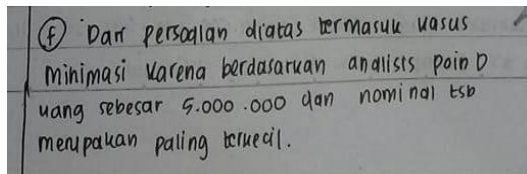 (f) Dari persoalan diatas termasuk kasus
minimasi karena berdasarkan analisis poin D
uang sebesar 5.000.000 dan nominal tsb
merupakan paling terkecil.